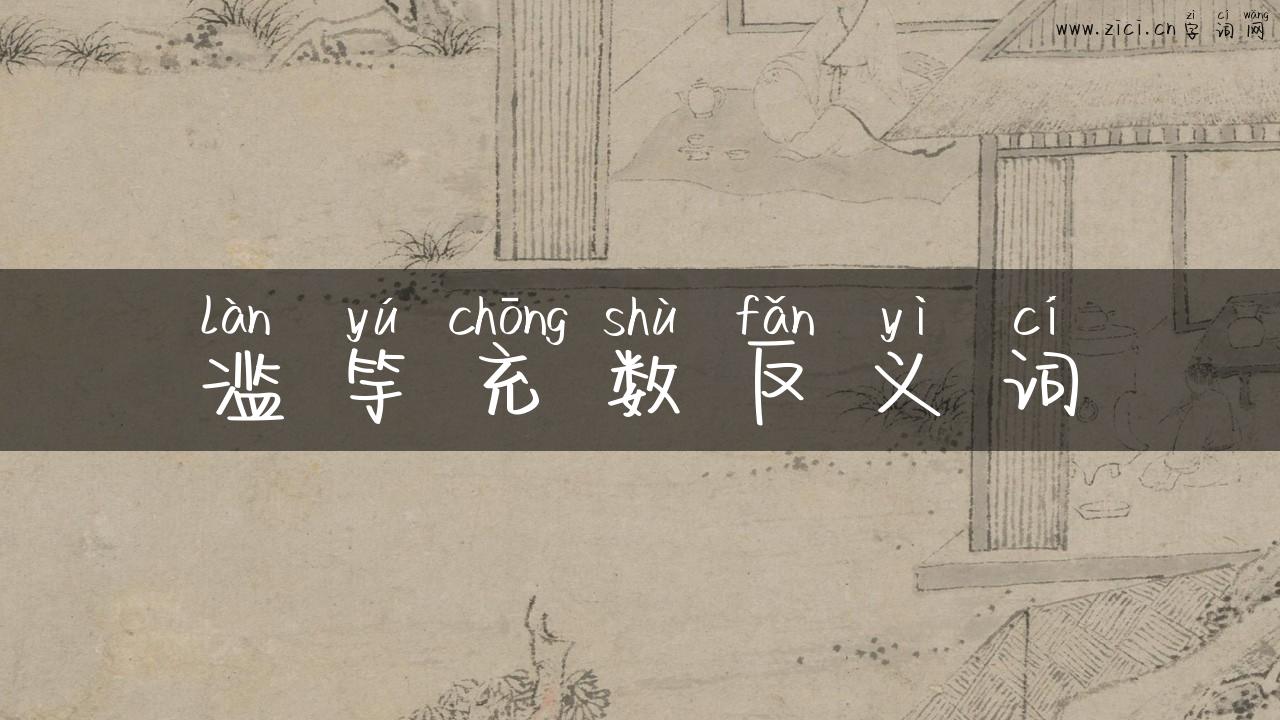 zì cí wǎng
www.zici.cn 字词网
làn yú chōng shù fǎn yì cí
滥竽充数反义词